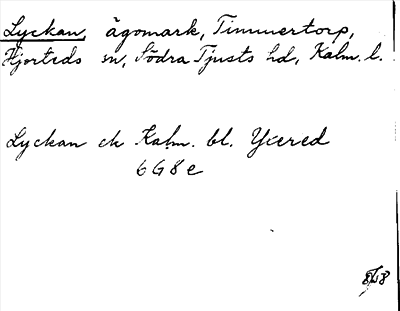 Lyckan, ägomark, Timmertorp,
Hjorteds sn, Södra Tjusts hd, Kalm. l.
Lyckan ek Kalm. bl. Yxered
6G8e